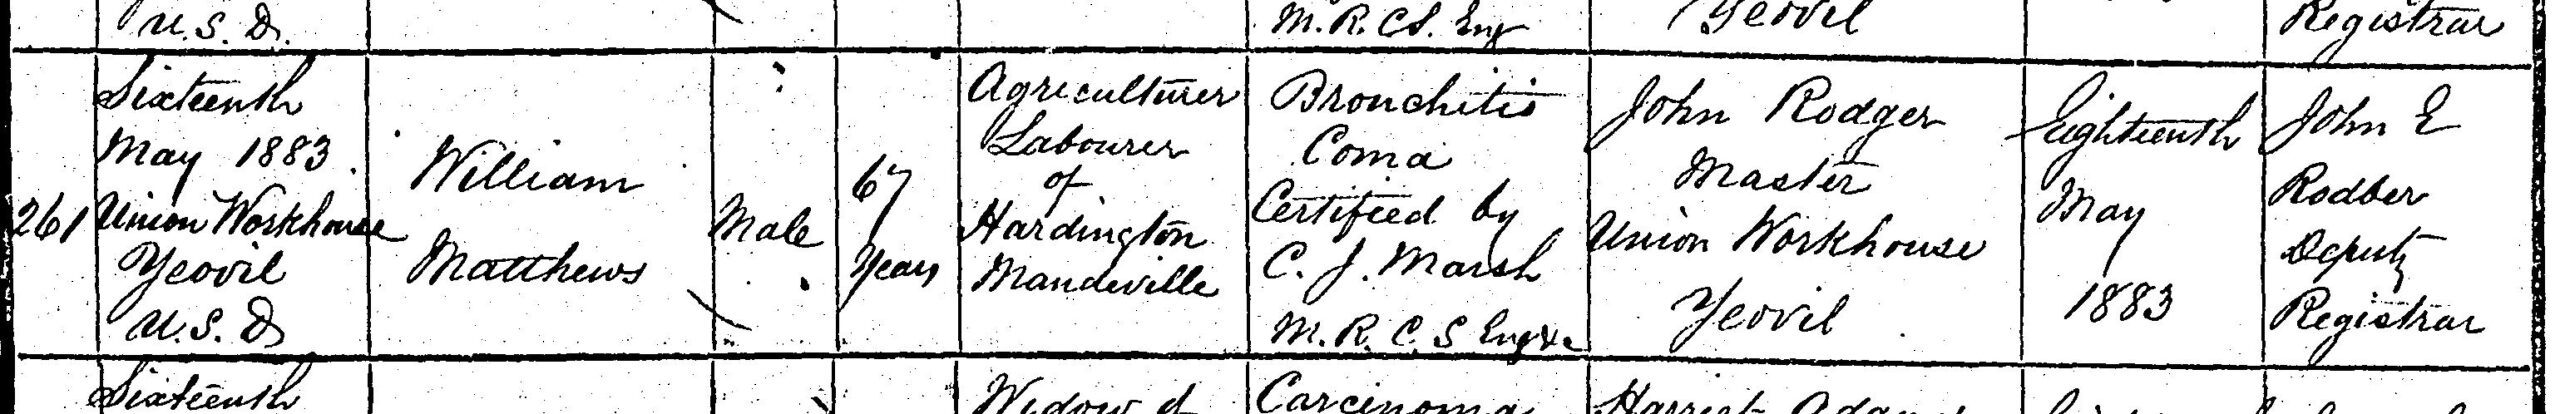 U.S.D.
M.R.C.S. Eng
Yeovil
Registrar
261
Sixteenth
May 1883
Union Workhouse
Yeovil
U.S.D
William
Matthews
Male
67
Years
Agriculturer
Labourer
of
Hardington
Mandeville
Bronchitis
Coma
Certified by
C. J. Marsh
M.R.C.S Eng
John Rodger
Master
Union Workhouse
Yeovil
Eighteenth
May
1883
John E
Rodber
Deputy
Registrar
Sixteenth
Widow of
Carcinoma
Harriet Adams